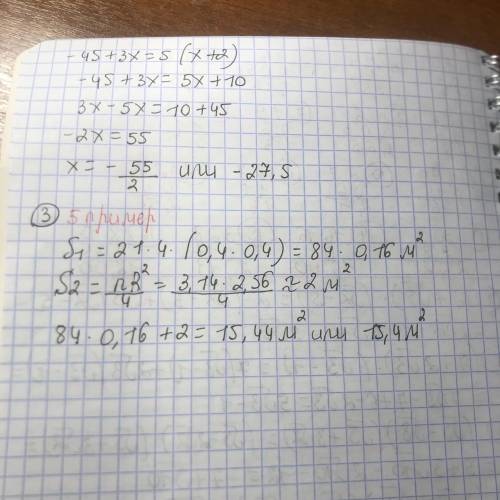 -45+3x=5 (x+2)
-45+3x=5x+10
3x-5x=10+45
-2x=55
x= - 55/2 или -27,5
③ 5 пример
S1 = 21·4·(0,4·0,4)=84·0,16м²
S2 = πR²/4 = 3,14·2,56/4 ≈ 2м²
84·0,16+2=15,44м² или 15,4м²